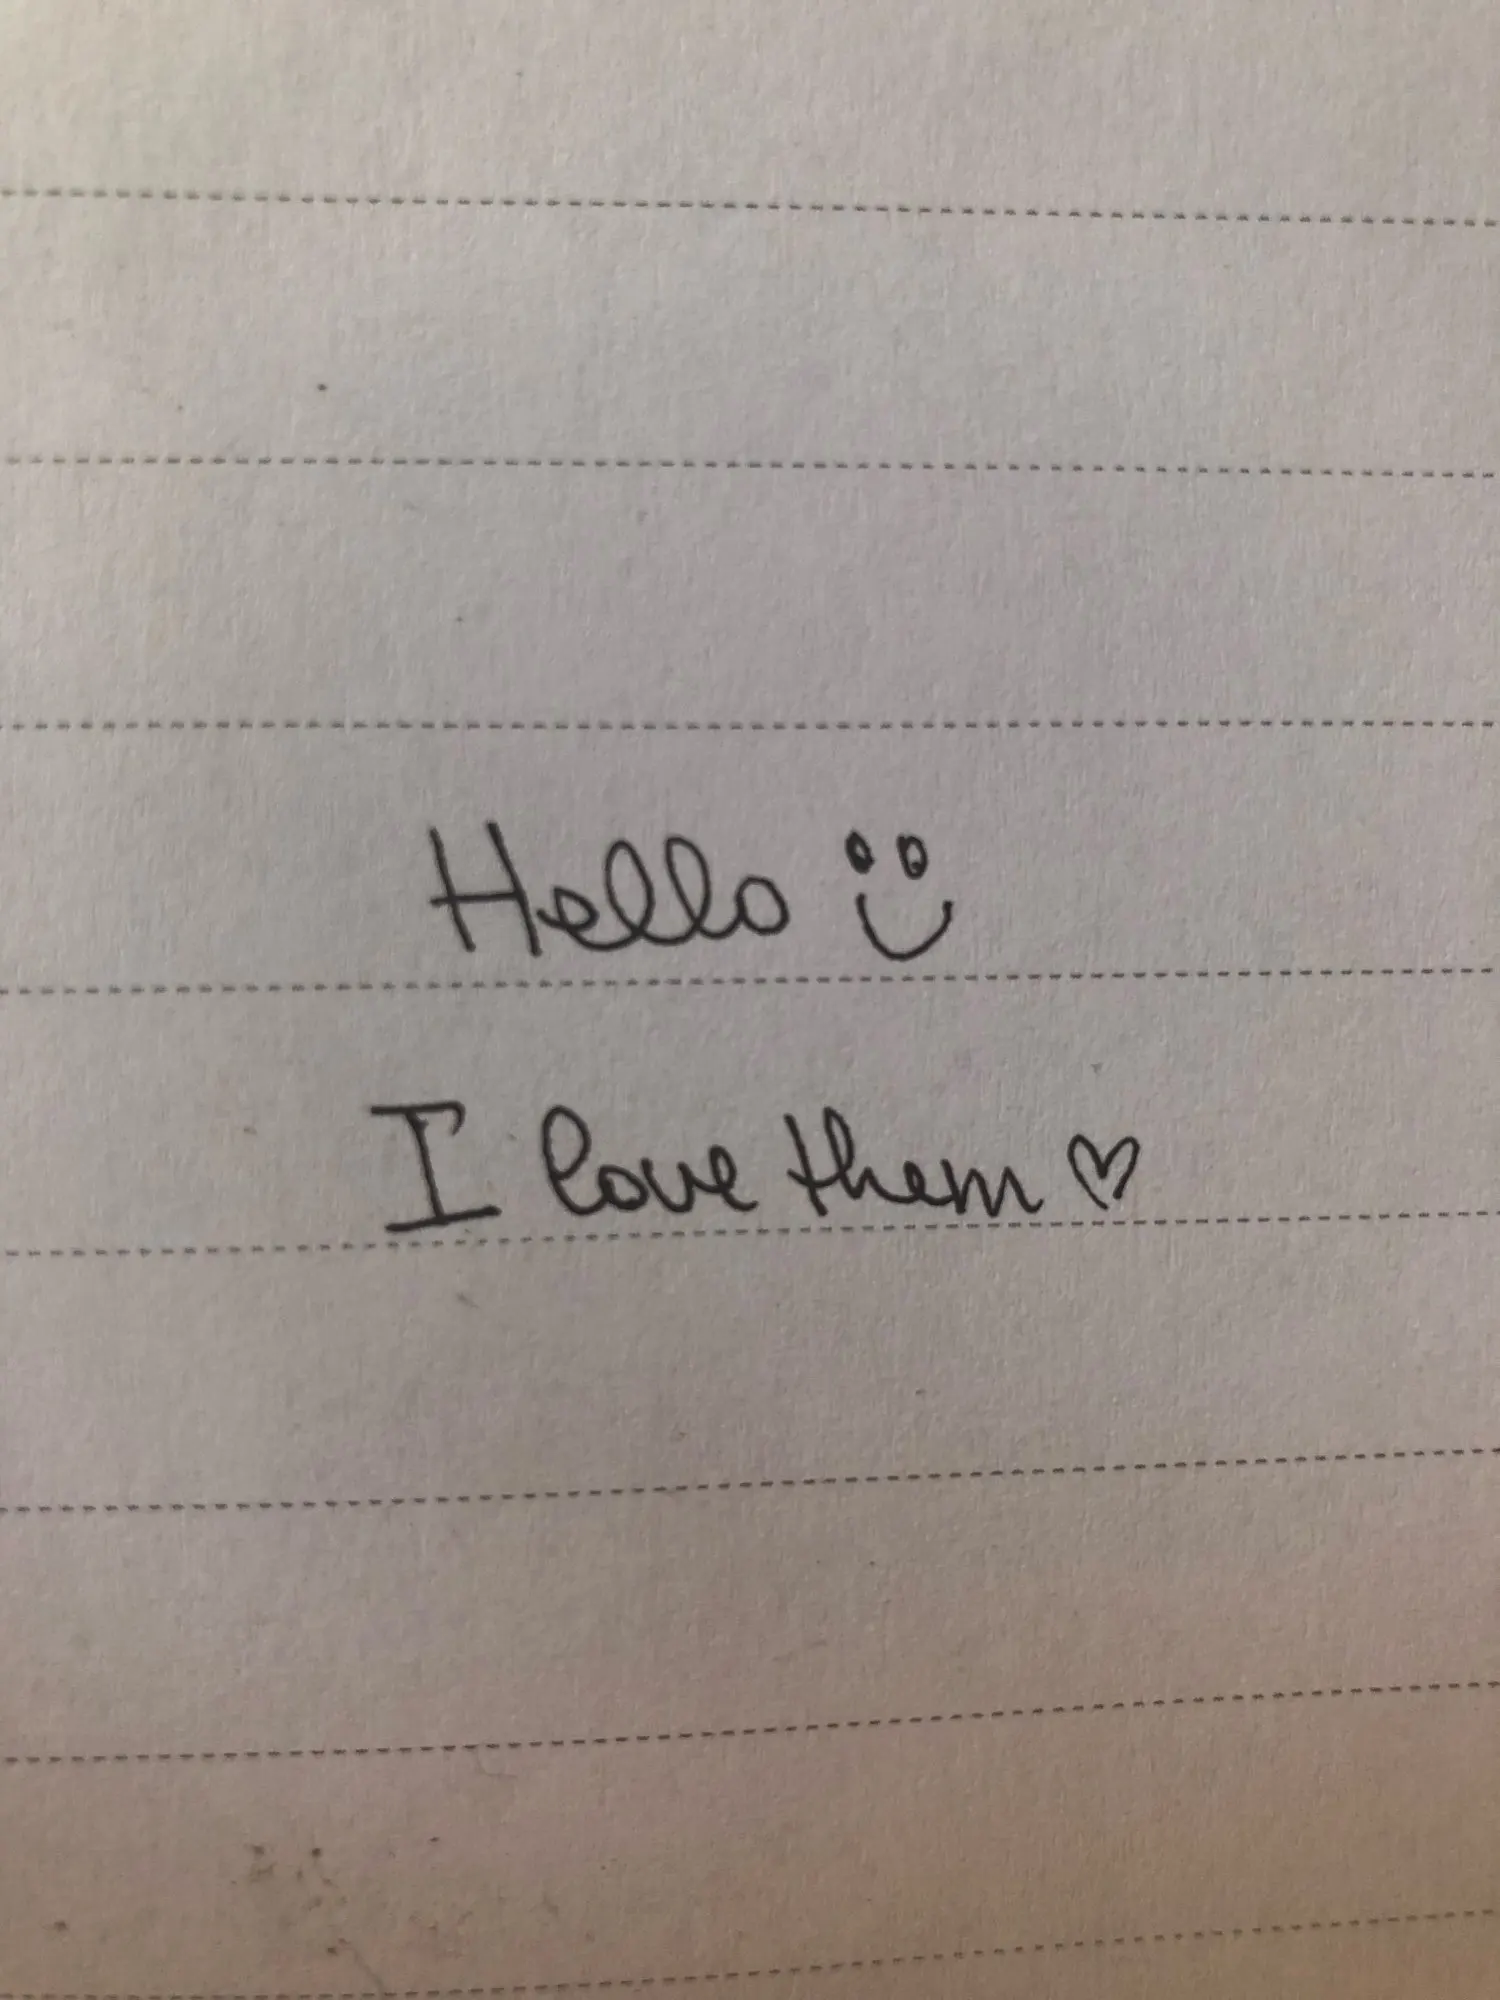 Hello
I love them ♡